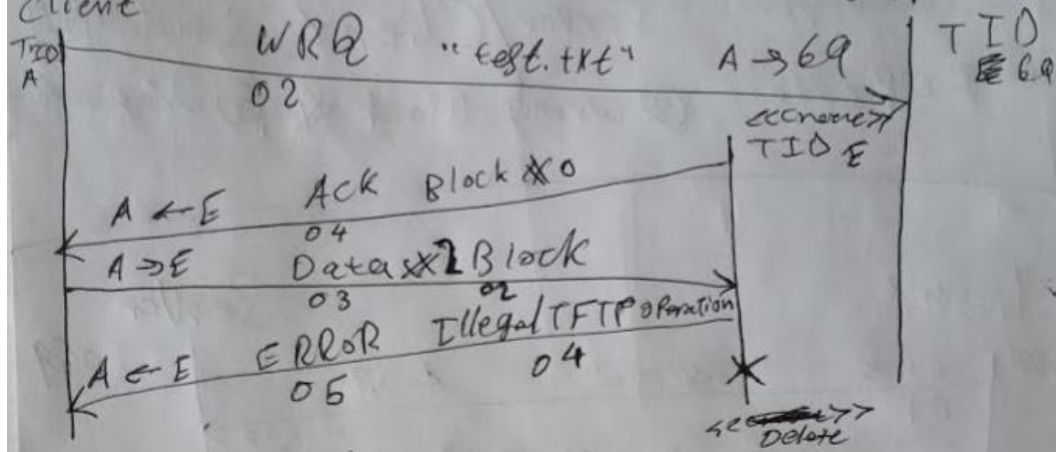 Client
TID A
WRQ "test.txt" A → 69
02
TID 69
<<create>>
TID E
A ← E Ack Block 0
04
A → E Data 2 Block
03 02
A ← E ERROR Illegal TFTP operation
05 04
<<Delete>>